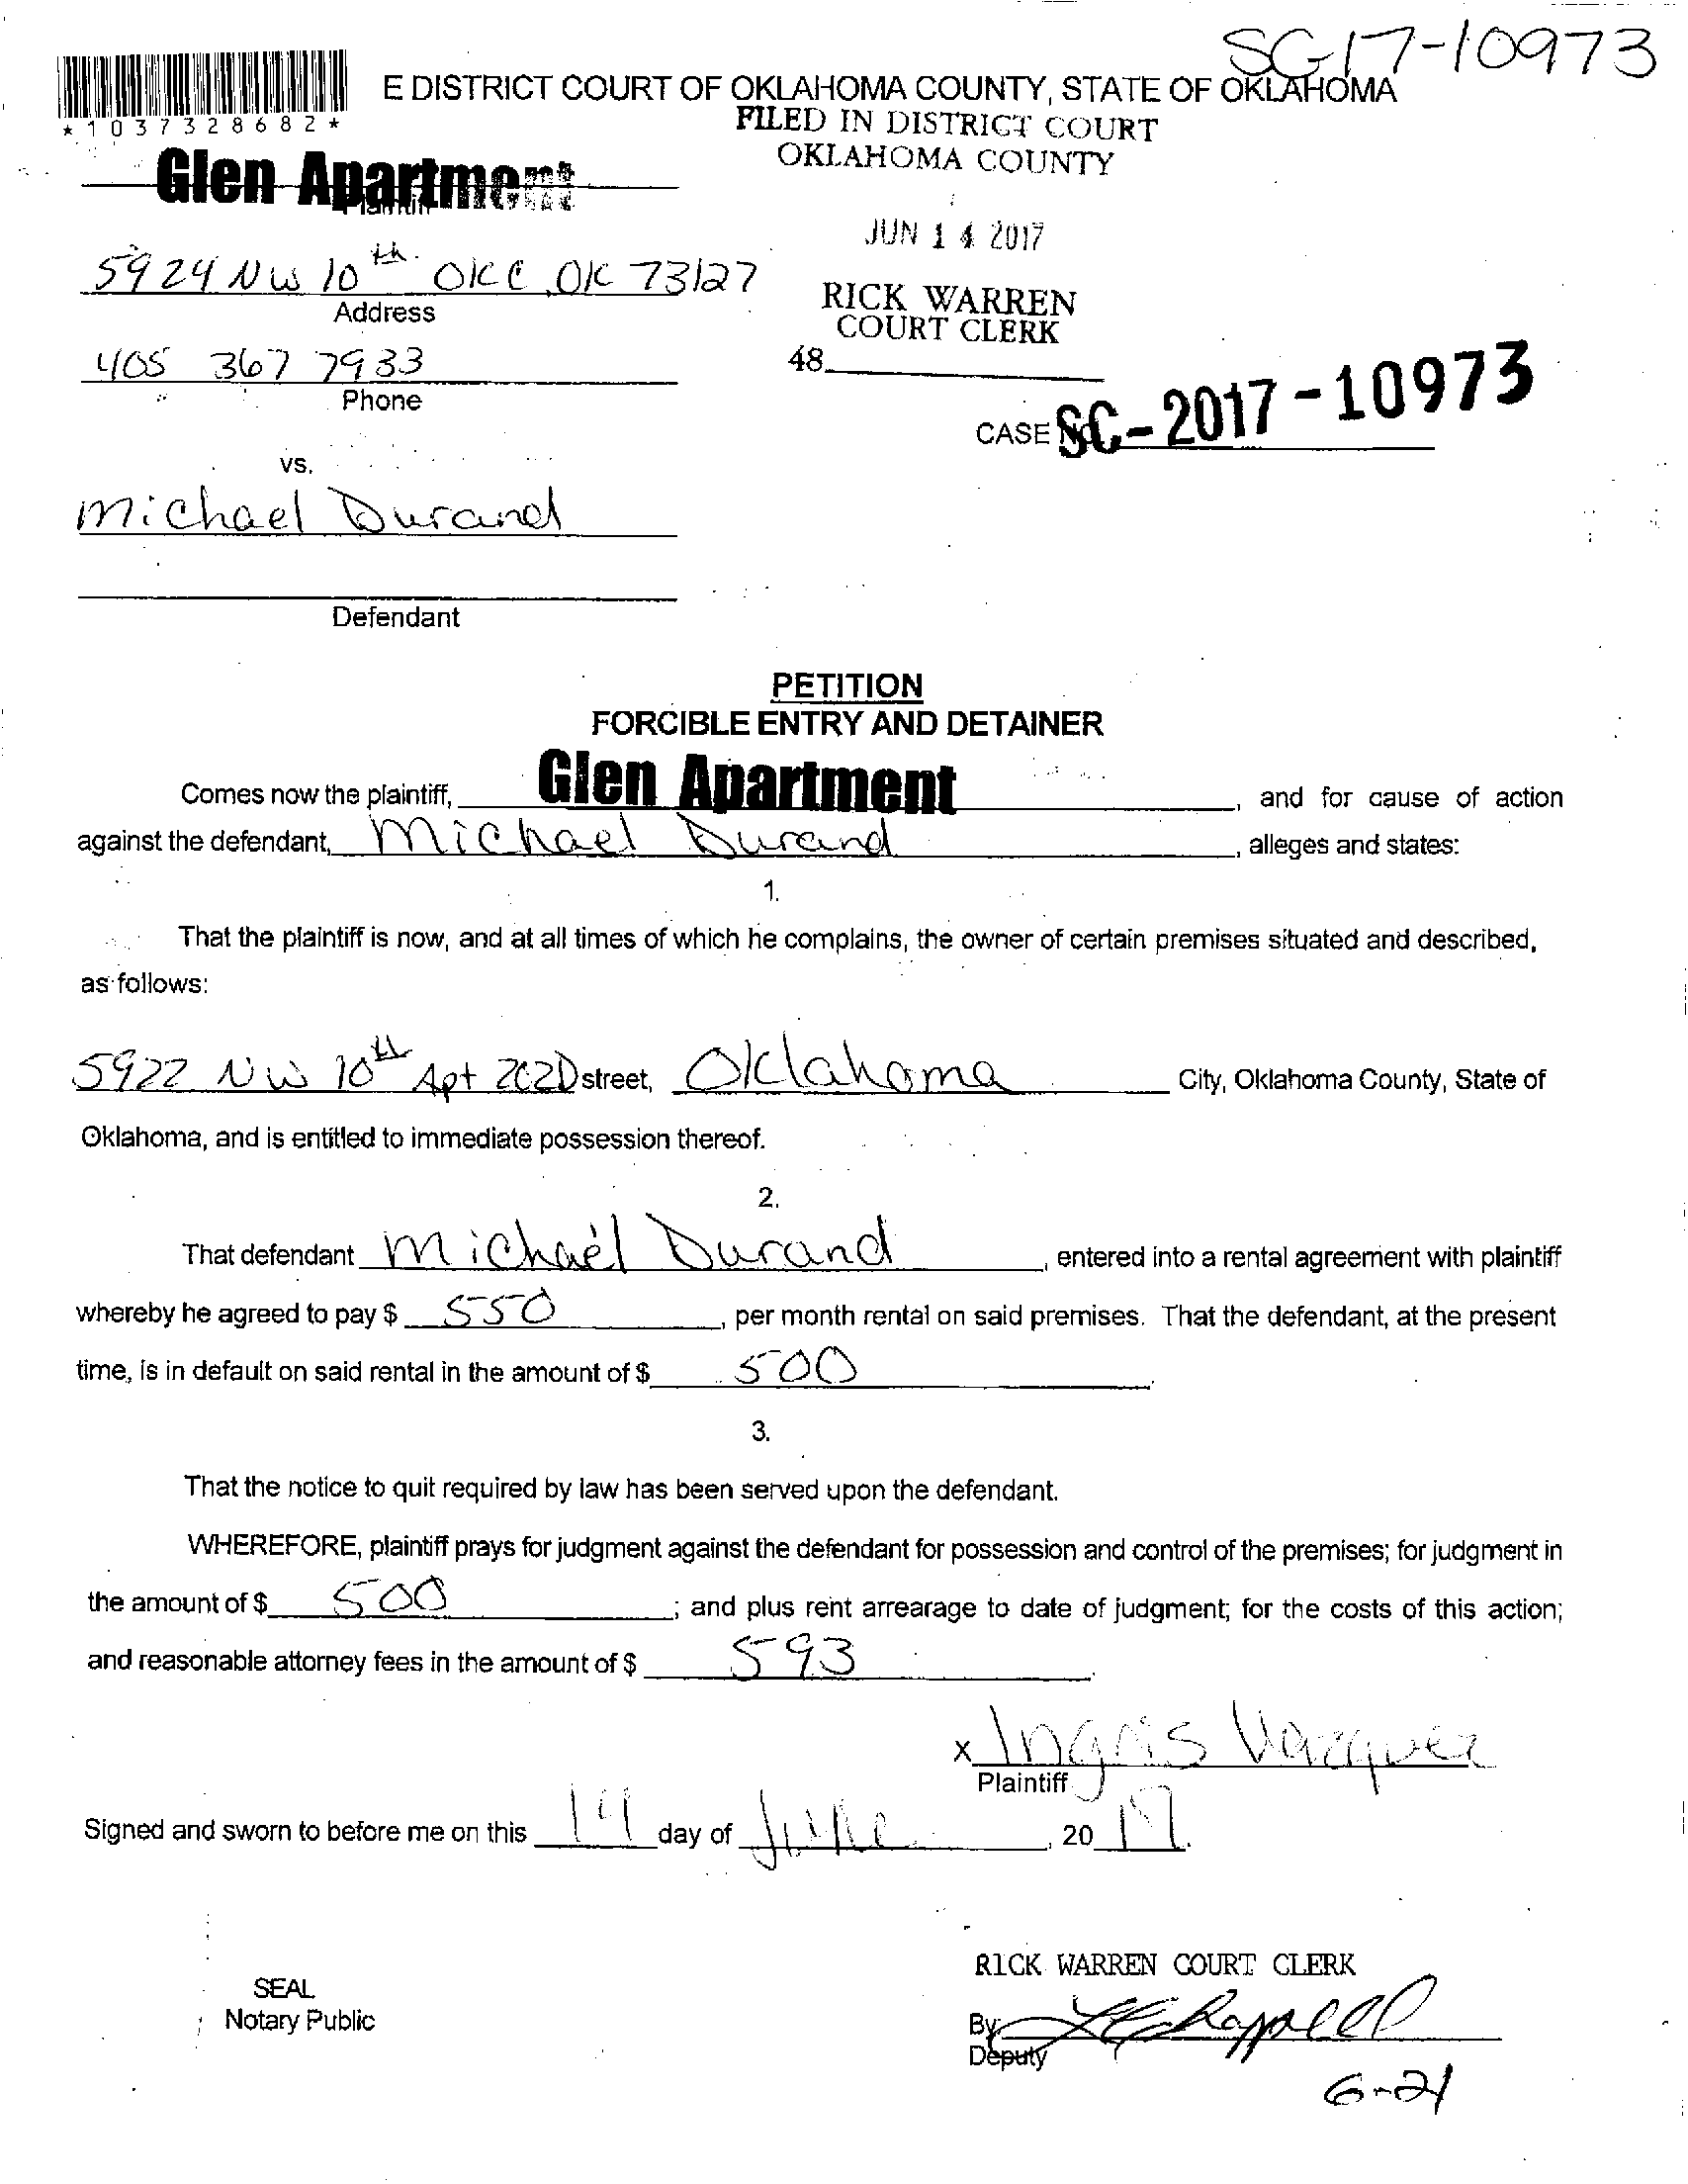 SC17-10973
E DISTRICT COURT OF OKLAHOMA COUNTY, STATE OF OKLAHOMA
*1037328682*
FILED IN DISTRICT COURT
OKLAHOMA COUNTY
Glen Apartment
Plaintiff
JUN 14 2017
5924 NW 10th OKC, OK 73127
Address
RICK WARREN
COURT CLERK
405 367 7933
48
Phone
CASE No. SC-2017-10973
vs.
Michael Durand
Defendant
PETITION
FORCIBLE ENTRY AND DETAINER
Comes now the plaintiff, Glen Apartment, and for cause of action
against the defendant, Michael Durand, alleges and states:
1.
That the plaintiff is now, and at all times of which he complains, the owner of certain premises situated and described,
as follows:
5922 NW 10th Apt 202D street, Oklahoma City, Oklahoma County, State of
Oklahoma, and is entitled to immediate possession thereof.
2.
That defendant Michael Durand, entered into a rental agreement with plaintiff
whereby he agreed to pay $ 550, per month rental on said premises. That the defendant, at the present
time, is in default on said rental in the amount of $ 500.
3.
That the notice to quit required by law has been served upon the defendant.
WHEREFORE, plaintiff prays for judgment against the defendant for possession and control of the premises; for judgment in
the amount of $ 500; and plus rent arrearage to date of judgment; for the costs of this action;
and reasonable attorney fees in the amount of $ 593.
x Ingris Vazquez
Plaintiff
Signed and sworn to before me on this 14 day of June, 2017.
RICK WARREN COURT CLERK
SEAL
Notary Public
By
Deputy
6-21